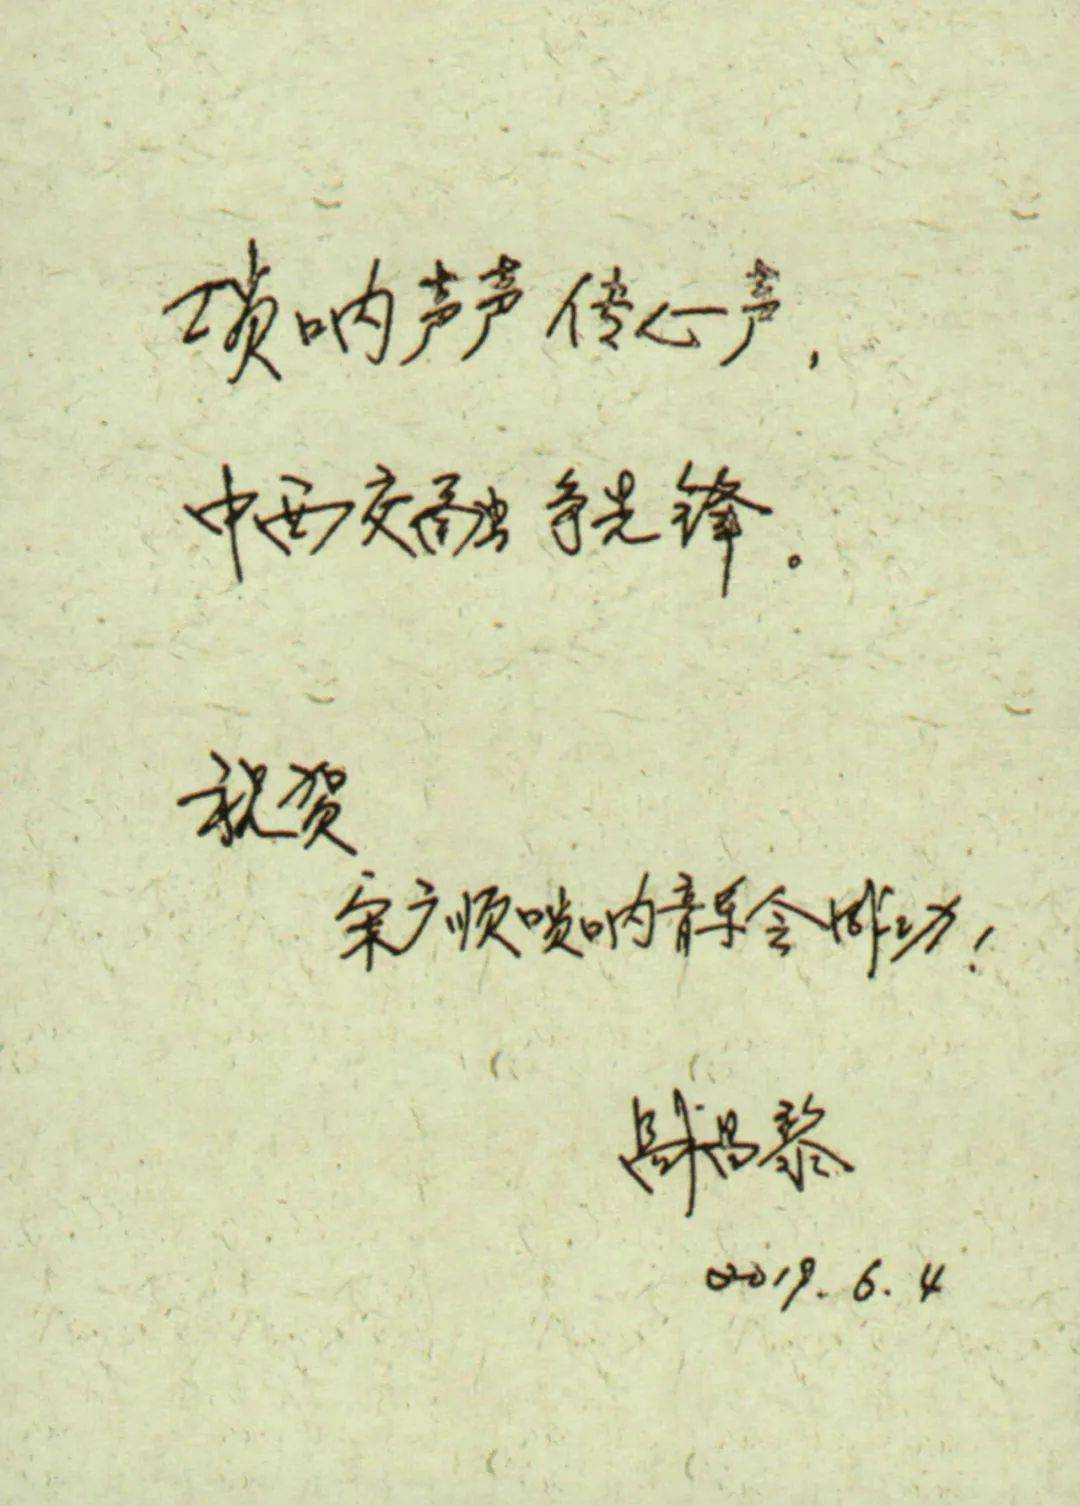 琐呐声声传心声，
中西交融争先锋。
祝贺
宋广顺唢呐音乐会成功！
2019.6.4